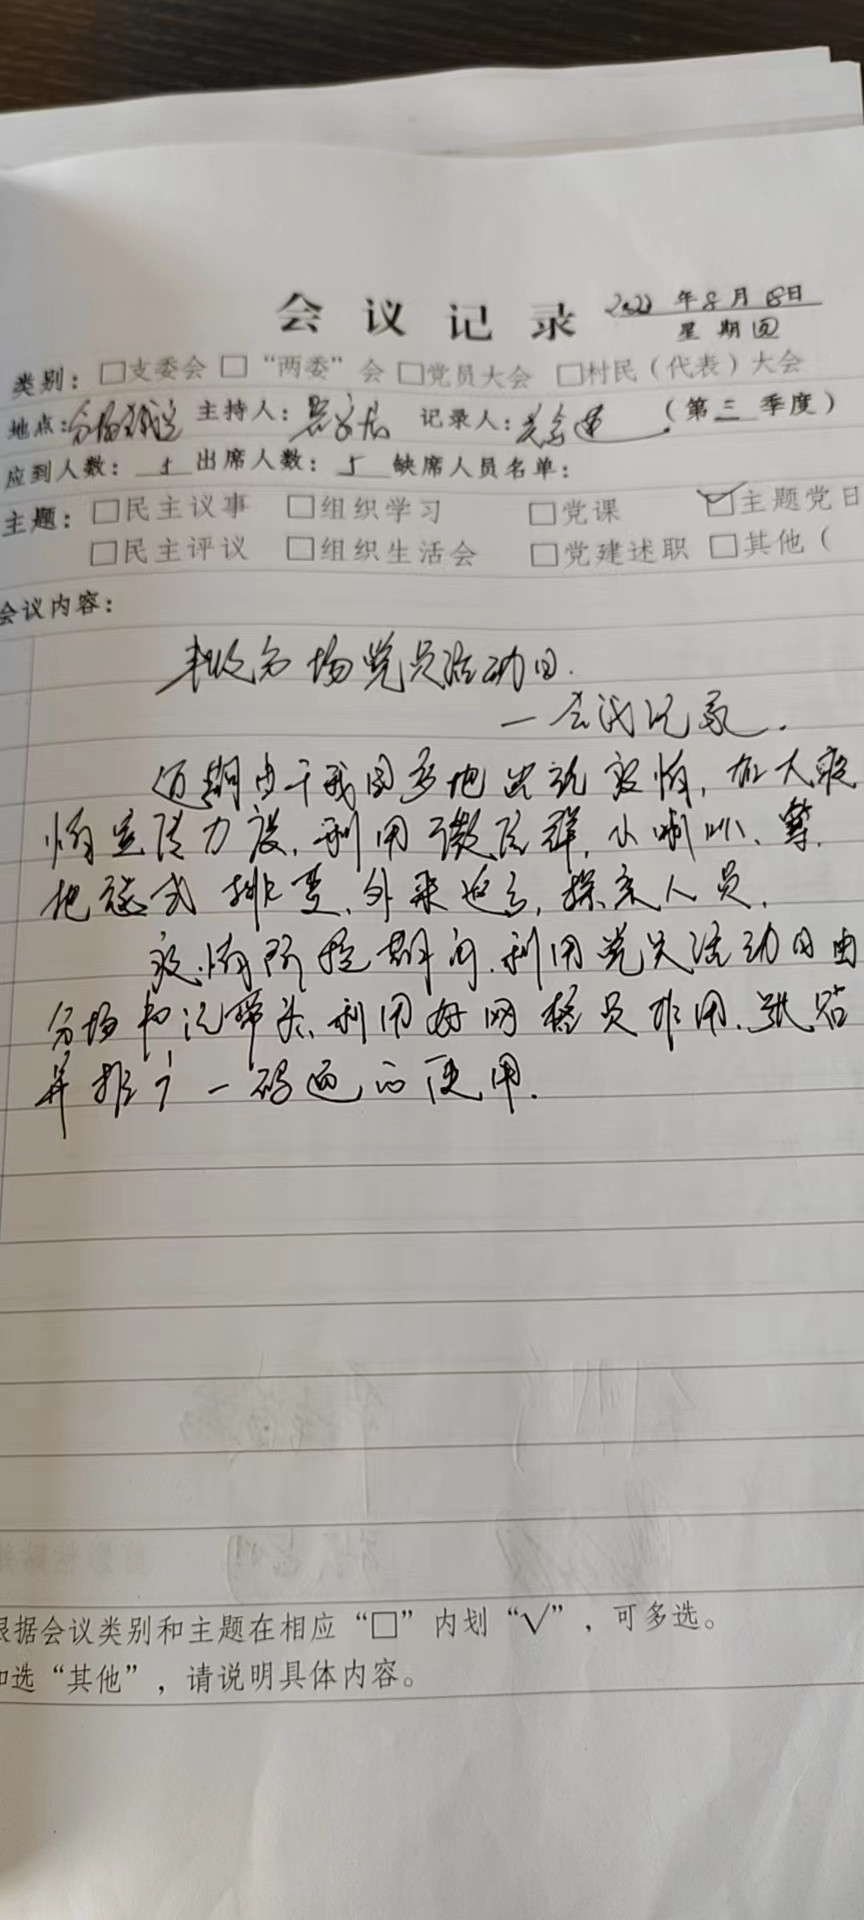 会议记录 2022年8月18日
星期四
类别：□支委会 □“两委”会 □党员大会 □村民（代表）大会
地点： 主持人： 记录人： （第三季度）
应到人数：5 出席人数：5 缺席人员名单：
主题：□民主议事 □组织学习 □党课 ☑主题党日
□民主评议 □组织生活会 □党建述职 □其他（
会议内容：
分场党员活动日.
—会议记录.
近期由于我国多地出现疫情，加大疫
情宣传力度，利用微信群，小喇叭、等.
排查，外来返乡，探亲人员.
疫情防控期间.利用党员活动日由
分场书记带头、利用好网格员作用.张贴
并推广一码通的使用.
根据会议类别和主题在相应“□”内划“√”，可多选。
如选“其他”，请说明具体内容。